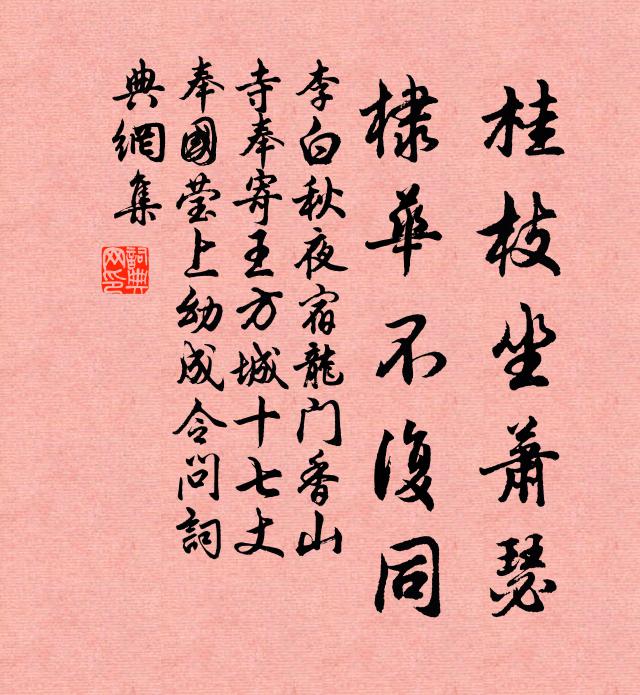 桂枝坐蕭瑟
棣華不復同
李白秋夜宿龍门香山
寺奉寄王方城十七丈
奉國莹上幼成令问詞
典網集
詞典
网印